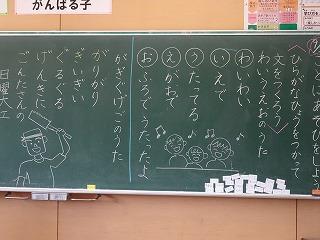 がんばる子
ことばあそびをしよう
ひらがなひょうをつかって
文をつくろう
わいうえおのうた
わいわい
いえで
うたってる
えがおで
おふろでうたったよ
がぎぐげごのうた
がりがり
ぎいぎい
ぐるぐる
げんきに
ごんたさんの
日曜大工